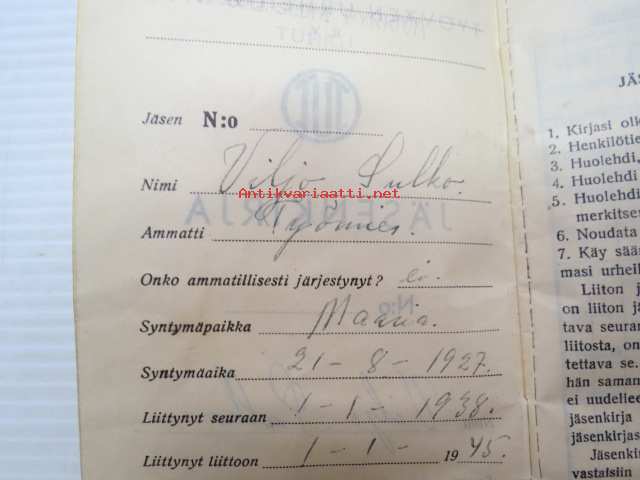 Jäsen N:o
Nimi Viljo Sulko.
Antikvariaatti.net
JÄSENKIRJA
Ammatti Työmies.
Onko ammatillisesti järjestynyt? ei.
N:o
Syntymäpaikka Maaria.
Syntymäaika 21-8-1927.
Liittynyt seuraan 1-1-1938.
Liittynyt liittoon 1-1-1945.
JÄS
1. Kirjasi olk
2. Henkilötie
3. Huolehdi,
4. Huolehdi
5. Huolehdi
merkitsem
6. Noudata
7. Käy sään
masi urheil
Liiton j
on liiton jä
tava seura
liitosta, on
tettava se.
hän saman
ei uudellee
jäsenkirja
jäsenkirjas
Jäsenki
vastaisiin